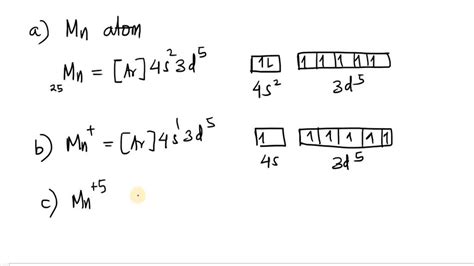 a) Mn atom
₂₅Mn = [Ar] 4s² 3d⁵ 1L 1 1 1 1 1
4s² 3d⁵
b) Mn⁺ = [Ar] 4s¹ 3d⁵ 1 1 1 1 1 1
4s 3d⁵
c) Mn⁺⁵